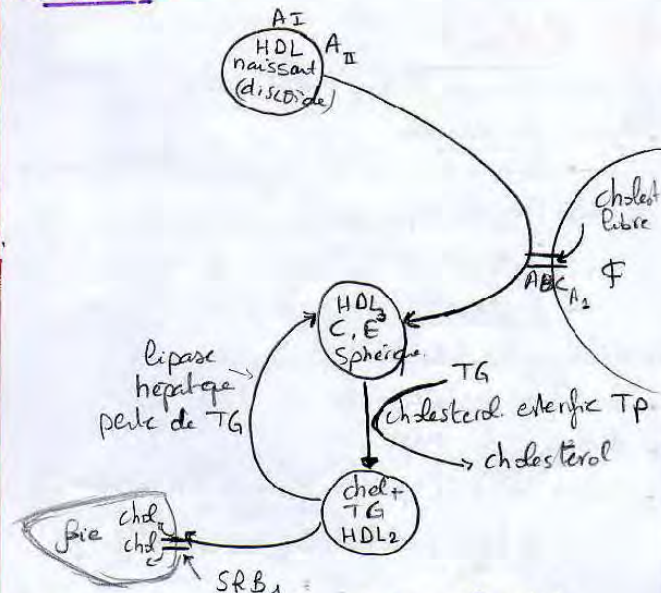 AI
HDL
AII
naissant
(discoïde)
cholest
libre
ABCA1
HDL3
C, E
Sphérique
lipase
hépatique
perte de TG
TG
cholesterol esterifie TP
cholestérol
chol+
TG
HDL2
foie
chol
chol
SRB1